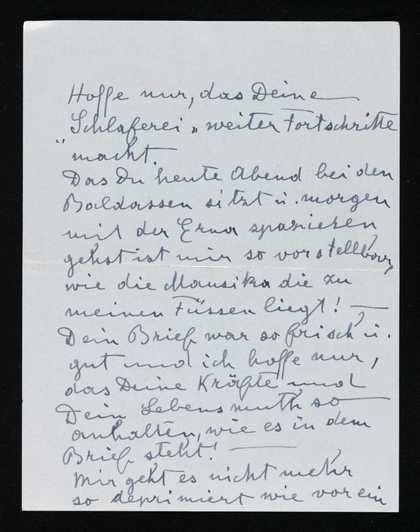 Hoffe nur, das Deine
Schlaferei „ weiter Fortschritte
“ macht.
Das Du heute Abend bei den
Baldassen sitzt u. morgen
mit der Erna spazieren
gehst ist mir so vorstellbar,
wie die Mausika die zu
meinen Füssen liegt! —
Dein Brief war so frisch u.
gut und ich hoffe nur,
das Deine Kräfte und
Dein Lebensmuth so
anhalten, wie es in dem
Brief steht! —
Mir geht es nicht mehr
so deprimiert wie vor ein